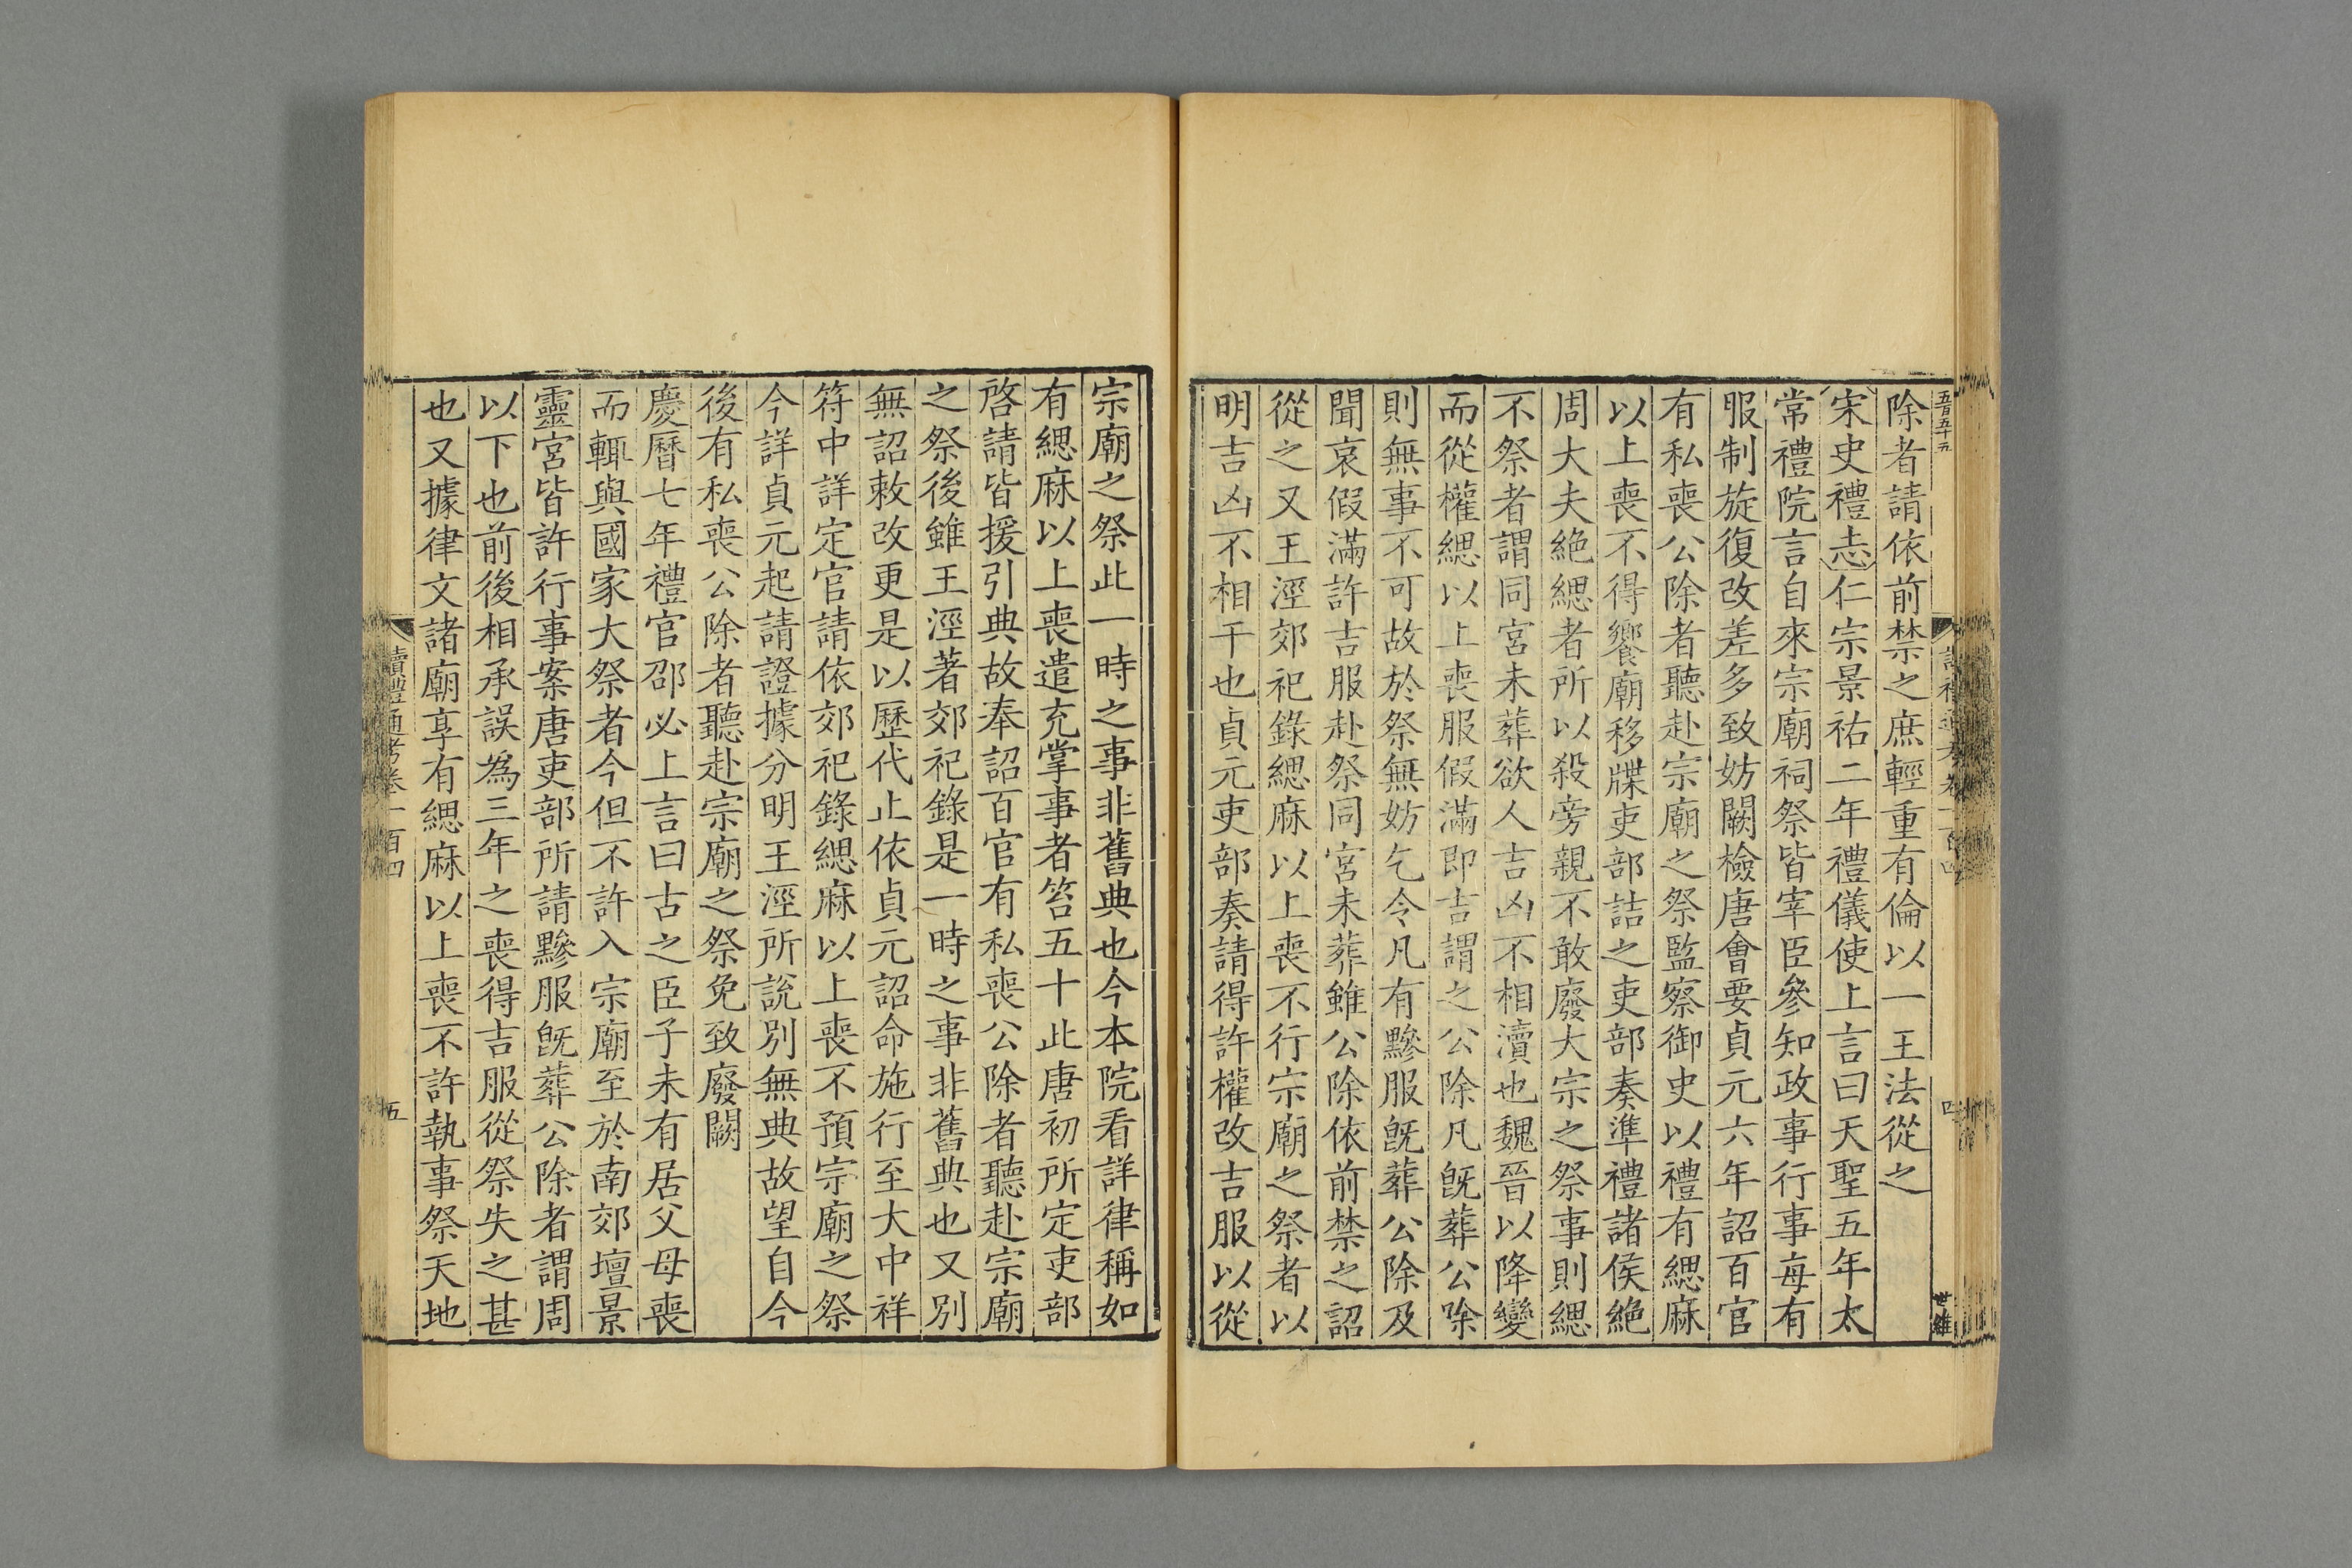 五百五十五
讀禮通考卷一百四
四
世維
除者請依前禁之庶輕重有倫以一王法從之
宋史禮志仁宗景祐二年禮儀使上言曰天聖五年太
常禮院言自來宗廟祠祭皆宰臣參知政事行事每有
服制旋復改差多致妨闕檢唐會要貞元六年詔百官
有私喪公除者聽赴宗廟之祭監察御史以禮有緦麻
以上喪不得饗廟移牒吏部詰之吏部奏準禮諸侯絶
周大夫絶緦者所以殺旁親不敢廢大宗之祭事則緦
不祭者謂同宮未葬欲人吉凶不相瀆也魏晉以降變
而從權緦以上喪服假滿即吉謂之公除凡既葬公除
則無事不可故於祭無妨乞令凡有黲服既葬公除及
聞哀假滿許吉服赴祭同宮未葬雖公除依前禁之詔
從之又王涇郊祀錄緦麻以上喪不行宗廟之祭者以
明吉凶不相干也貞元吏部奏請得許權改吉服以從
宗廟之祭此一時之事非舊典也今本院看詳律稱如
有緦麻以上喪遣充掌事者笞五十此唐初所定吏部
啓請皆援引典故奉詔百官有私喪公除者聽赴宗廟
之祭後雖王涇著郊祀錄是一時之事非舊典也又別
無詔敕改更是以歷代止依貞元詔命施行至大中祥
符中詳定官請依郊祀錄緦麻以上喪不預宗廟之祭
今詳貞元起請證據分明王涇所說別無典故望自今
後有私喪公除者聽赴宗廟之祭免致廢闕
慶曆七年禮官邵必上言曰古之臣子未有居父母喪
而輒與國家大祭者今但不許入宗廟至於南郊壇景
靈宮皆許行事案唐吏部所請黲服既葬公除者謂周
以下也前後相承誤為三年之喪得吉服從祭失之甚
也又據律文諸廟享有緦麻以上喪不許執事祭天地
讀禮通考卷一百四
五